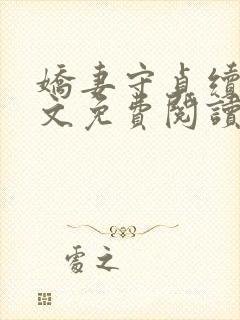 嬌妻守貞續
文免費閱讀
處之